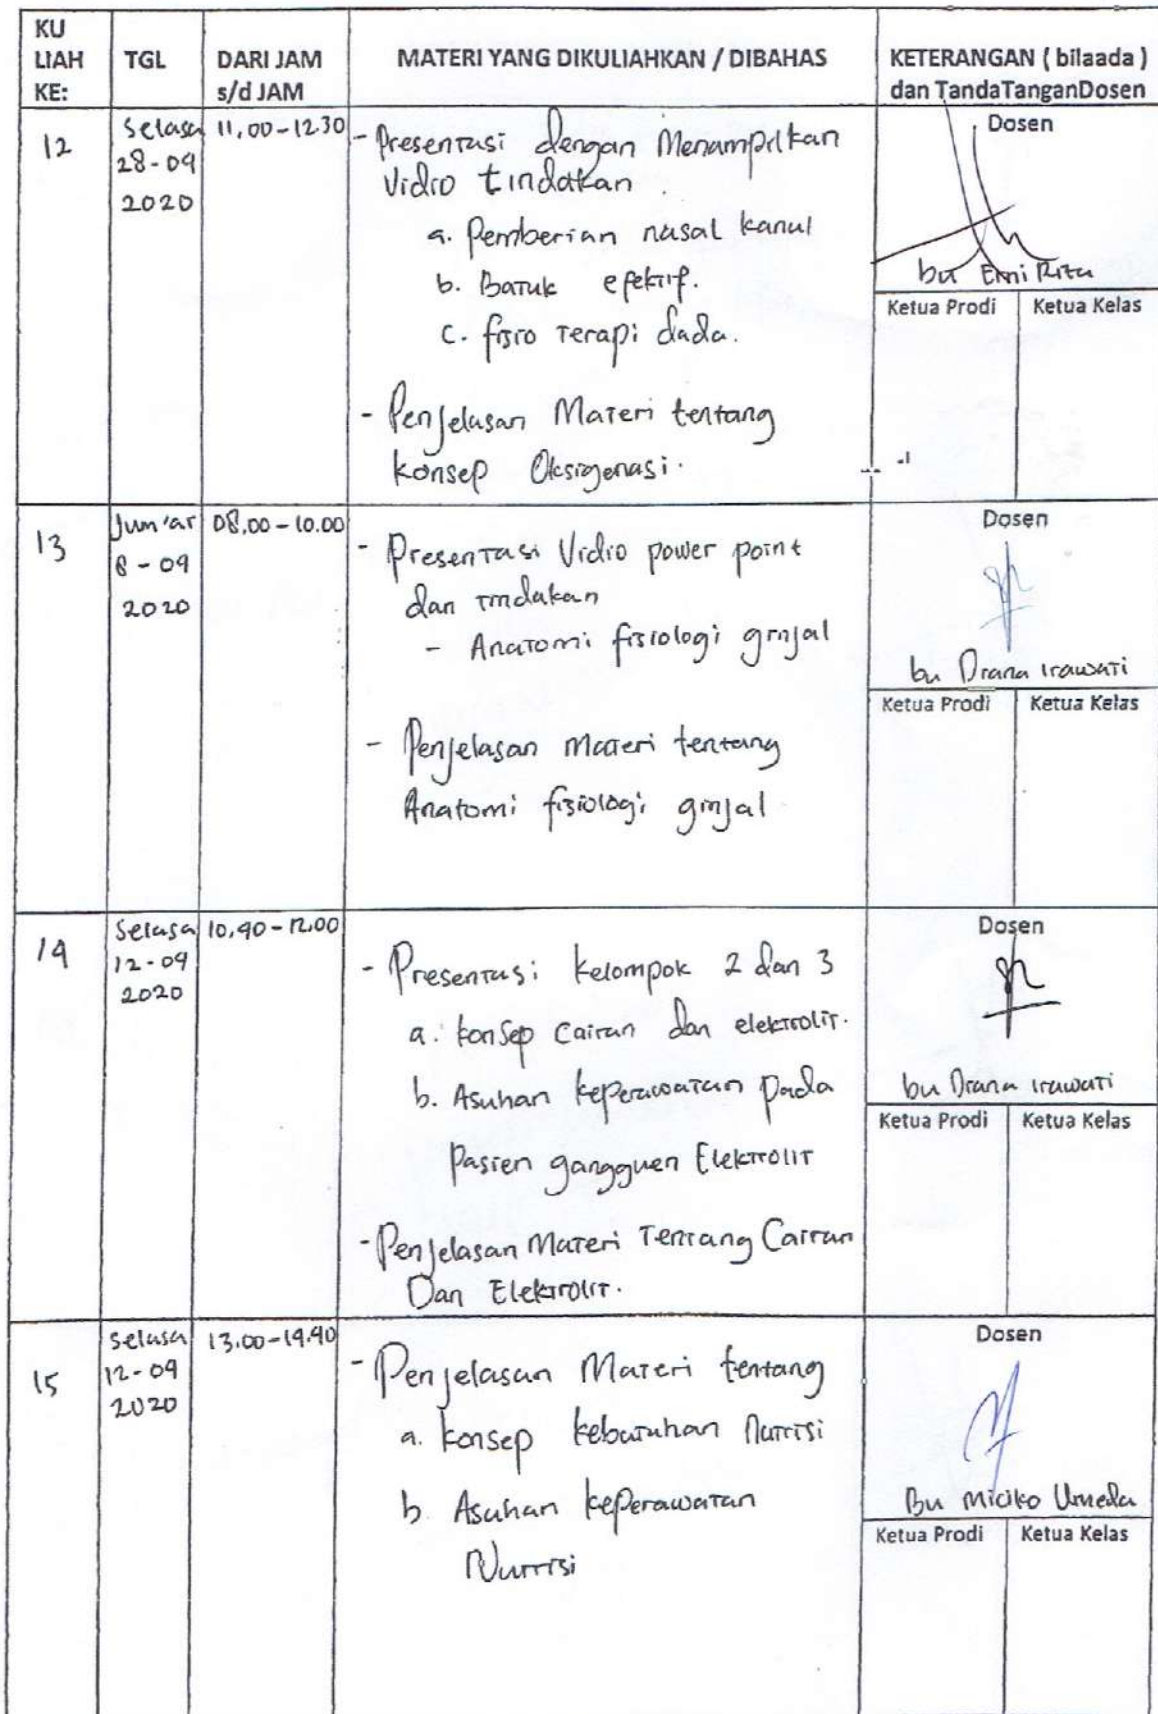 KU
LIAH
KE:
TGL
DARI JAM
s/d JAM
MATERI YANG DIKULIAHKAN / DIBAHAS
KETERANGAN ( bilaada )
dan TandaTanganDosen
12
Selasa
28-09
2020
11.00-12.30
- Presentasi dengan Menampilkan
Vidio tindakan.
a. Pemberian nasal kanul
b. Batuk efektif.
c. fisio terapi dada.
- Penjelasan Materi tentang
konsep Oksigenasi.
Dosen
bu Erni Rita
Ketua Prodi
Ketua Kelas
13
Jum'at
8-09
2020
08.00-10.00
- Presentasi Vidio power point
dan tindakan
- Anatomi fisiologi ginjal
- Penjelasan Materi tentang
Anatomi fisiologi ginjal
Dosen
bu Diana irawati
Ketua Prodi
Ketua Kelas
14
Selasa
12-09
2020
10.40-12.00
- Presentasi kelompok 2 dan 3
a. konsep Cairan dan elektrolit.
b. Asuhan keperawatan pada
Pasien gangguen Elektrolit
- Penjelasan Materi Tentang Cairan
Dan Elektrolit.
Dosen
bu Diana irawati
Ketua Prodi
Ketua Kelas
15
Selasa
12-09
2020
13.00-14.40
- Penjelasan Materi tentang
a. konsep kebutuhan Nutrisi
b. Asuhan keperawatan
Nutrisi
Dosen
Bu Miciko Umeda
Ketua Prodi
Ketua Kelas